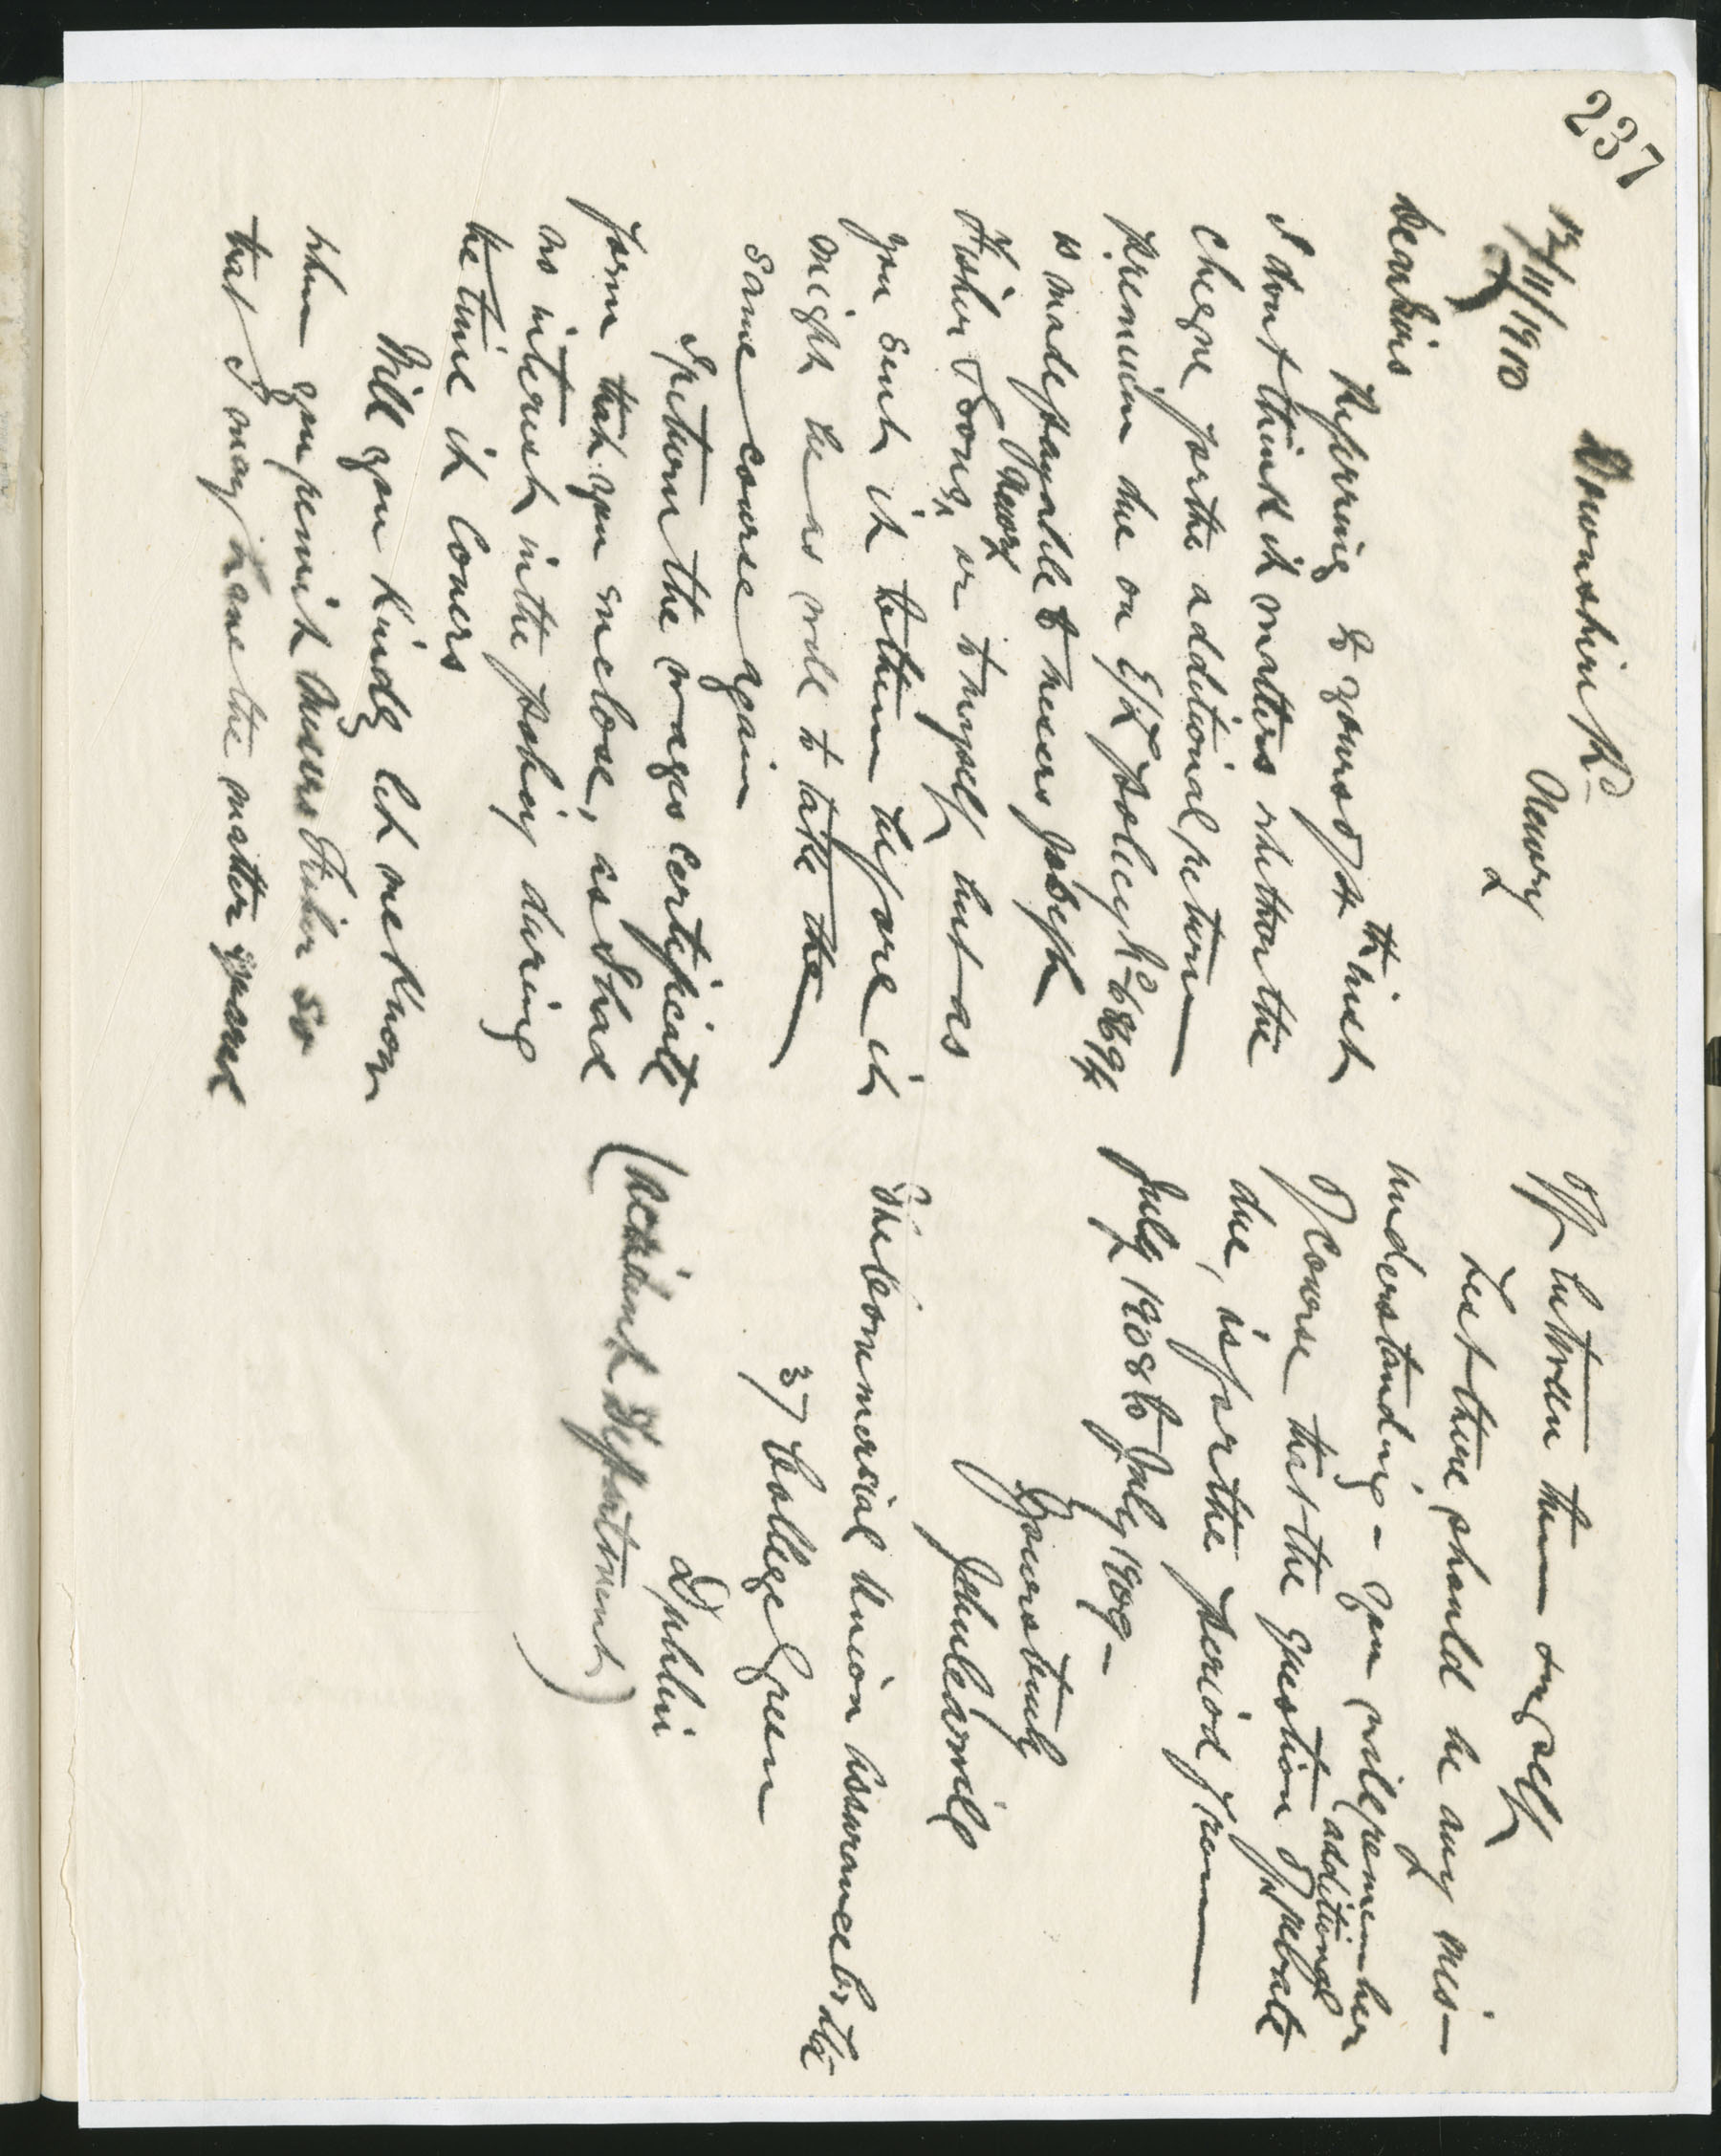 237
Downshire Rd
Newry
12/11/1910
Dear Sirs
Referring to yours of 7th inst
I don't think it matters whether the
cheque for the additional return
premium due on E/L policy No 68694
is made payable to Messrs Joseph
Newry
Fisher & Sons, or to myself, but as
you sent it to them before it
might be as well to take the
same course again
I return the wages certificate
form that you enclose, as I had
no interest in the policy during
the time it covers
Will you kindly let me know
when you remit Messrs Fisher so
that I may have the matter squared
off between them & myself
Lest there should be any mis-
understanding - you will remember
additional
of course that the question of rebate
due, is for the period from
July 1908 to July 1909 -
Yours truly
The Commercial Union Assurance Co Ltd
37 College Green
Dublin
(Accident Department)